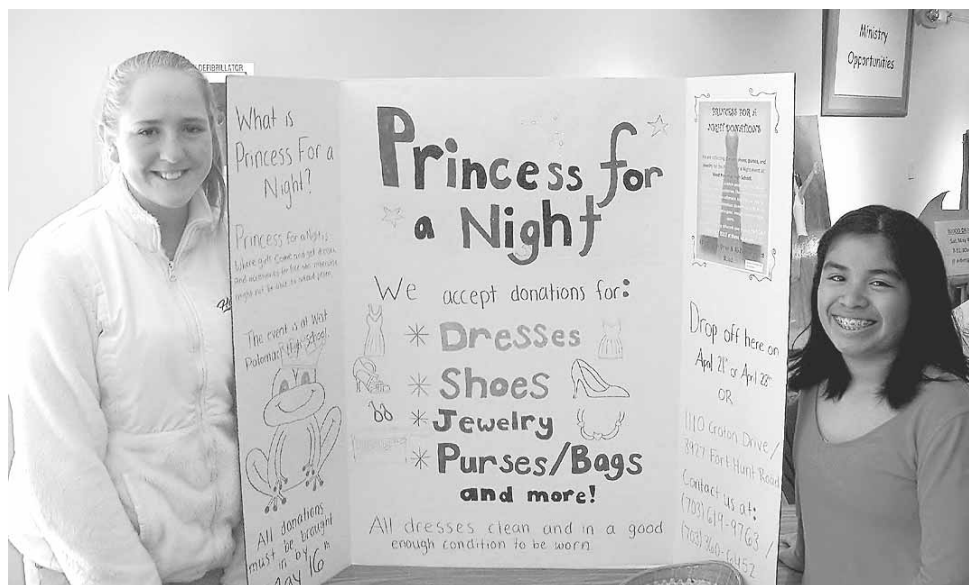 DEFIBRILLATOR
Ministry
Opportunities
What is
Princess For a
Night?
Princess for a Night is
where girls come and get dresses
and accessories for free who otherwise
might not be able to attend prom.
The event is at West
Potomac High School.
All donations
must be brought
in by
May 16th
Princess for
a Night
We accept donations for:
* Dresses
* Shoes
* Jewelry
* Purses/Bags
and more!
All dresses clean and in a good
enough condition to be worn
PRINCESS FOR A
NIGHT DONATIONS
Drop off here on
April 21st or April 28th
OR
1110 Croton Drive/
8927 Fort Hunt Road
Contact us at:
(703) 619-9763 /
(703) 360-6452